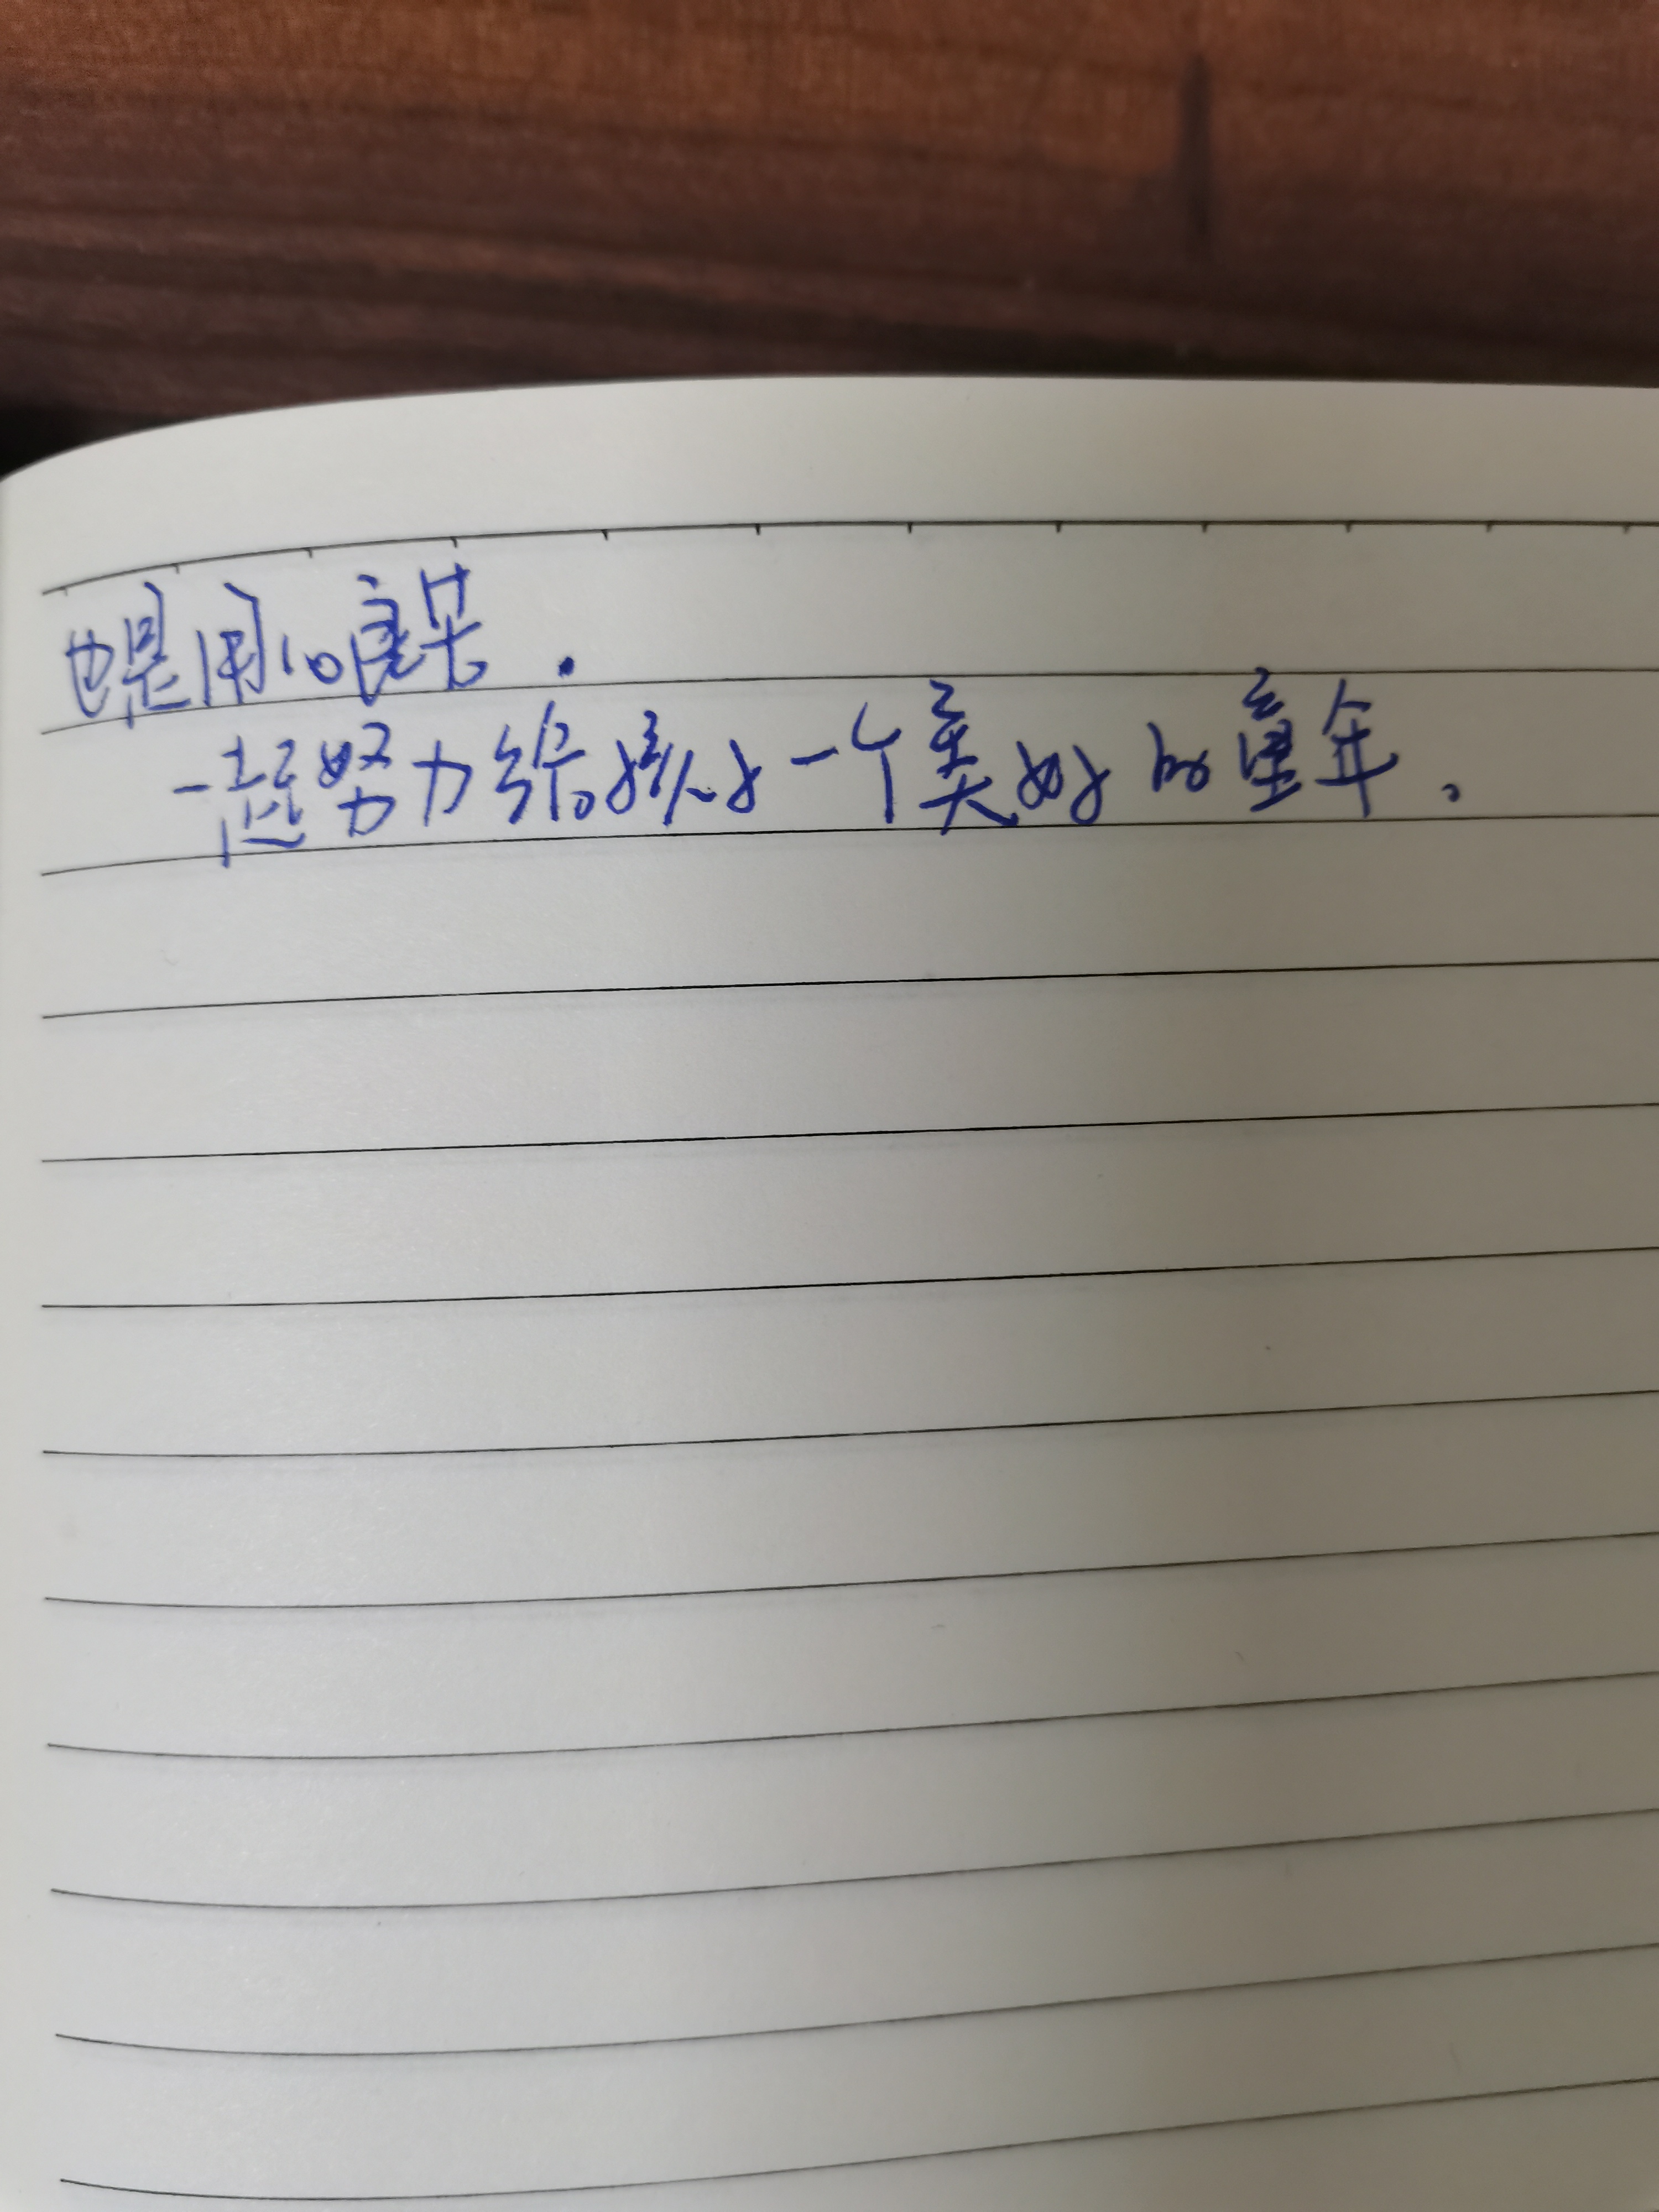 也是用心良苦.
一起努力给孩子一个美好的童年。